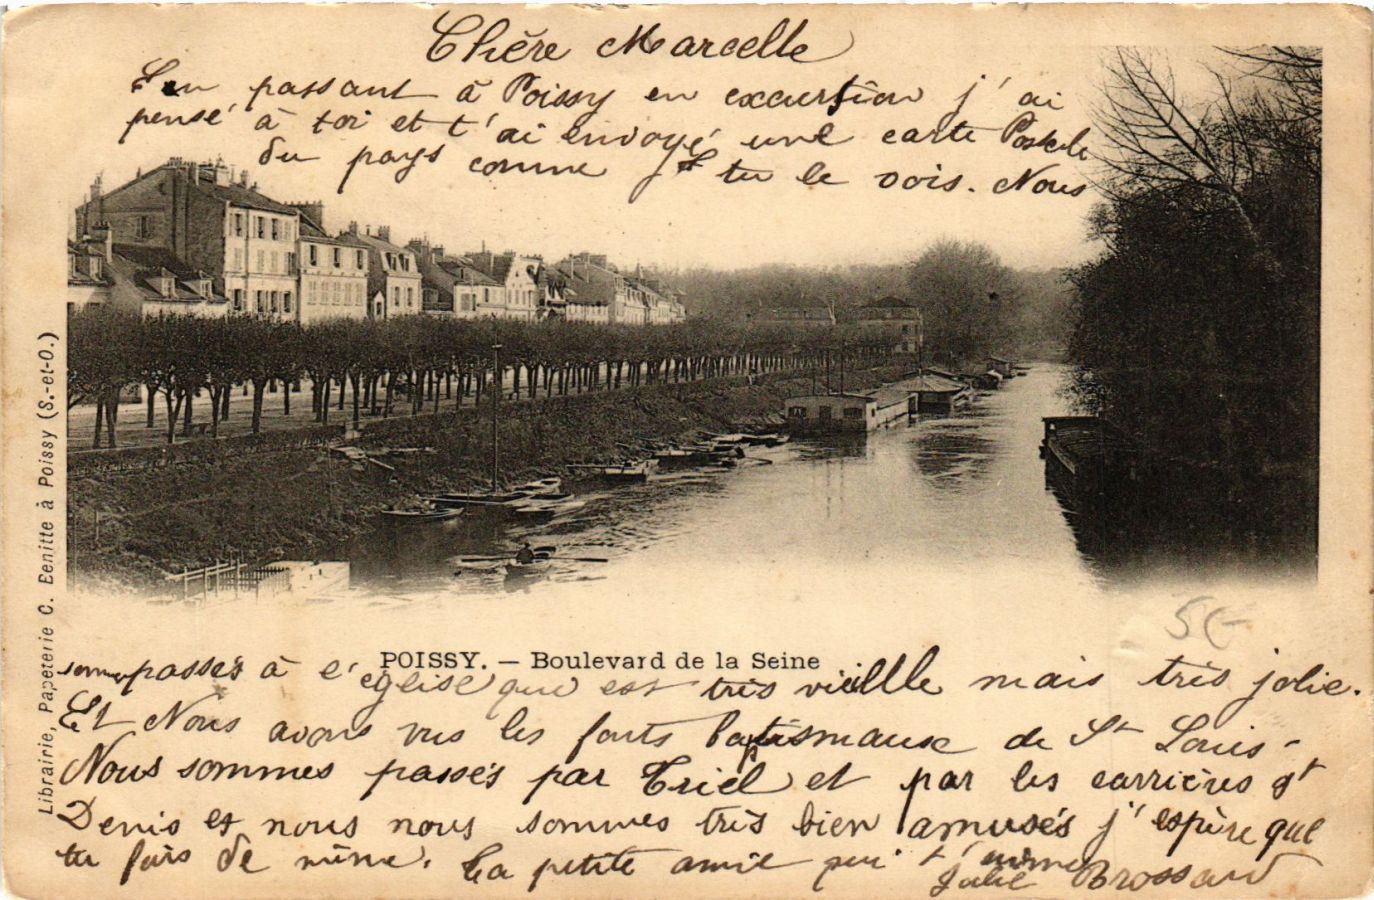 Chère Marcelle
En passant à Poissy en excursion j'ai
pensé à toi et t'ai envoyé une carte Postale
du pays comme tu le vois. Nous
POISSY. — Boulevard de la Seine
sommes passés à l'église qui est très vieille mais très jolie.
Et Nous avons vus les fonts baptismaux de St Louis -
Nous sommes passés par Triel et par les carrières St
Denis et nous nous sommes très bien amusés j'espère que
tu fais de même. Ta petite amie qui t'aime
Julie Brossard
Librairie, Papeterie C. Eenitte à Poissy (S.-et-O.)
5€